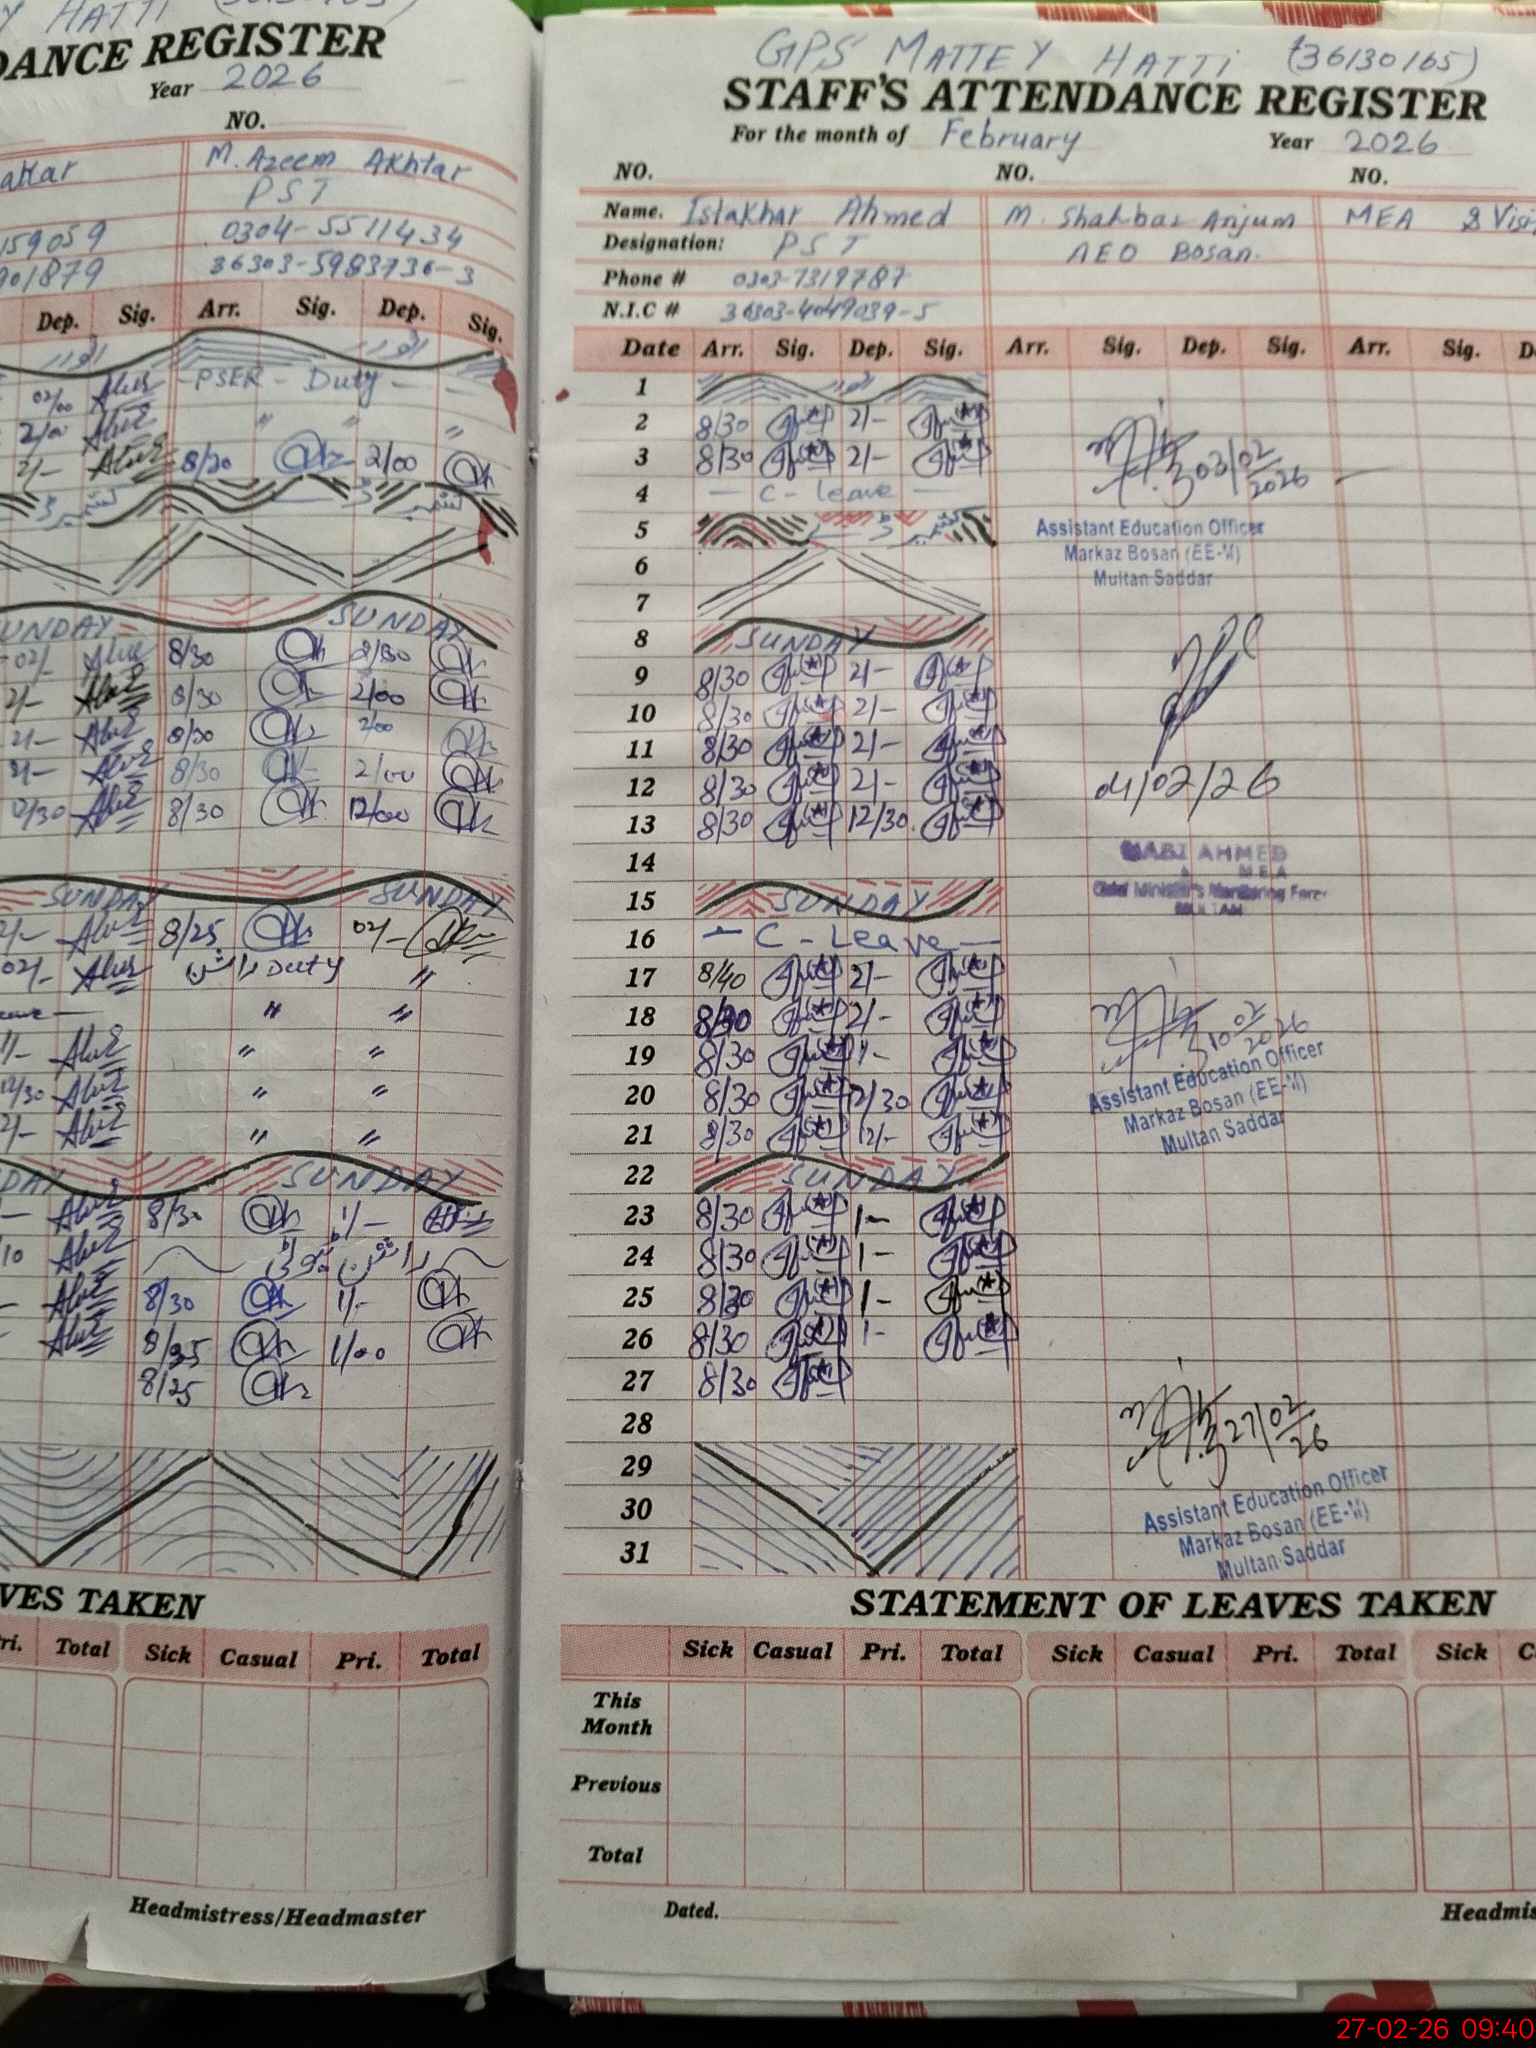 Y HATTI
DANCE REGISTER
Year 2026
NO.
M. Azeem Akhtar
PST
159059 0304-5511434
901879 36303-5983736-3
Dep. Sig. Arr. Sig. Dep. Sig.
02/00 PSER - Duty -
2/00 " "
2/- 8/20 2/00
SUNDAY SUNDAY
02/- 8/30 8/30
2/- 8/30 2/00
2/- 8/30 2/00
8/30 2/00
12/30 8/30 12/00
SUNDAY SUNDAY
2/- 8/25 02/-
02/- راشن Duty "
" "
1/- " "
12/30 " "
2/- " "
SUNDAY
8/30 1/-
/10 راشن ڈیوٹی
8/30 1/-
8/25 1/00
8/25
VES TAKEN
Pri. Total Sick Casual Pri. Total
Headmistress/Headmaster
GPS MATTEY HATTI (36130165)
STAFF'S ATTENDANCE REGISTER
For the month of February Year 2026
NO. NO. NO.
Name. Istakhar Ahmed M. Shahbaz Anjum MEA & Visi
Designation: PST AEO Bosan.
Phone # 0303-7319787
N.I.C # 36303-4049039-5
Date Arr. Sig. Dep. Sig. Arr. Sig. Dep. Sig. Arr. Sig. D
1 اتوار
2 8/30 2/-
3 8/30 2/- 03/02/2026
4 - C - leave -
5 کشمیر ڈے
Assistant Education Officer
Markaz Bosan (EE-M)
Multan Saddar
6
7
8 SUNDAY
9 8/30 2/-
10 8/30 2/-
11 8/30 2/-
12 8/30 2/- 04/02/26
13 8/30 12/30
14
NABI AHMED
MEA
Chief Minister's Monitoring Force
MULTAN
15 SUNDAY
16 - C - Leave -
17 8/40 2/-
18 8/30 2/- 10/02/2026
19 8/30 1/-
20 8/30 12/30
21 8/30 12/-
Assistant Education Officer
Markaz Bosan (EE-M)
Multan Saddar
22 SUNDAY
23 8/30 1-
24 8/30 1-
25 8/30 1-
26 8/30 1-
27 8/30
28 27/02/26
29
30
31
Assistant Education Officer
Markaz Bosan (EE-M)
Multan Saddar
STATEMENT OF LEAVES TAKEN
Sick Casual Pri. Total Sick Casual Pri. Total Sick C
This Month
Previous
Total
Dated. Headmis
27-02-26 09:40